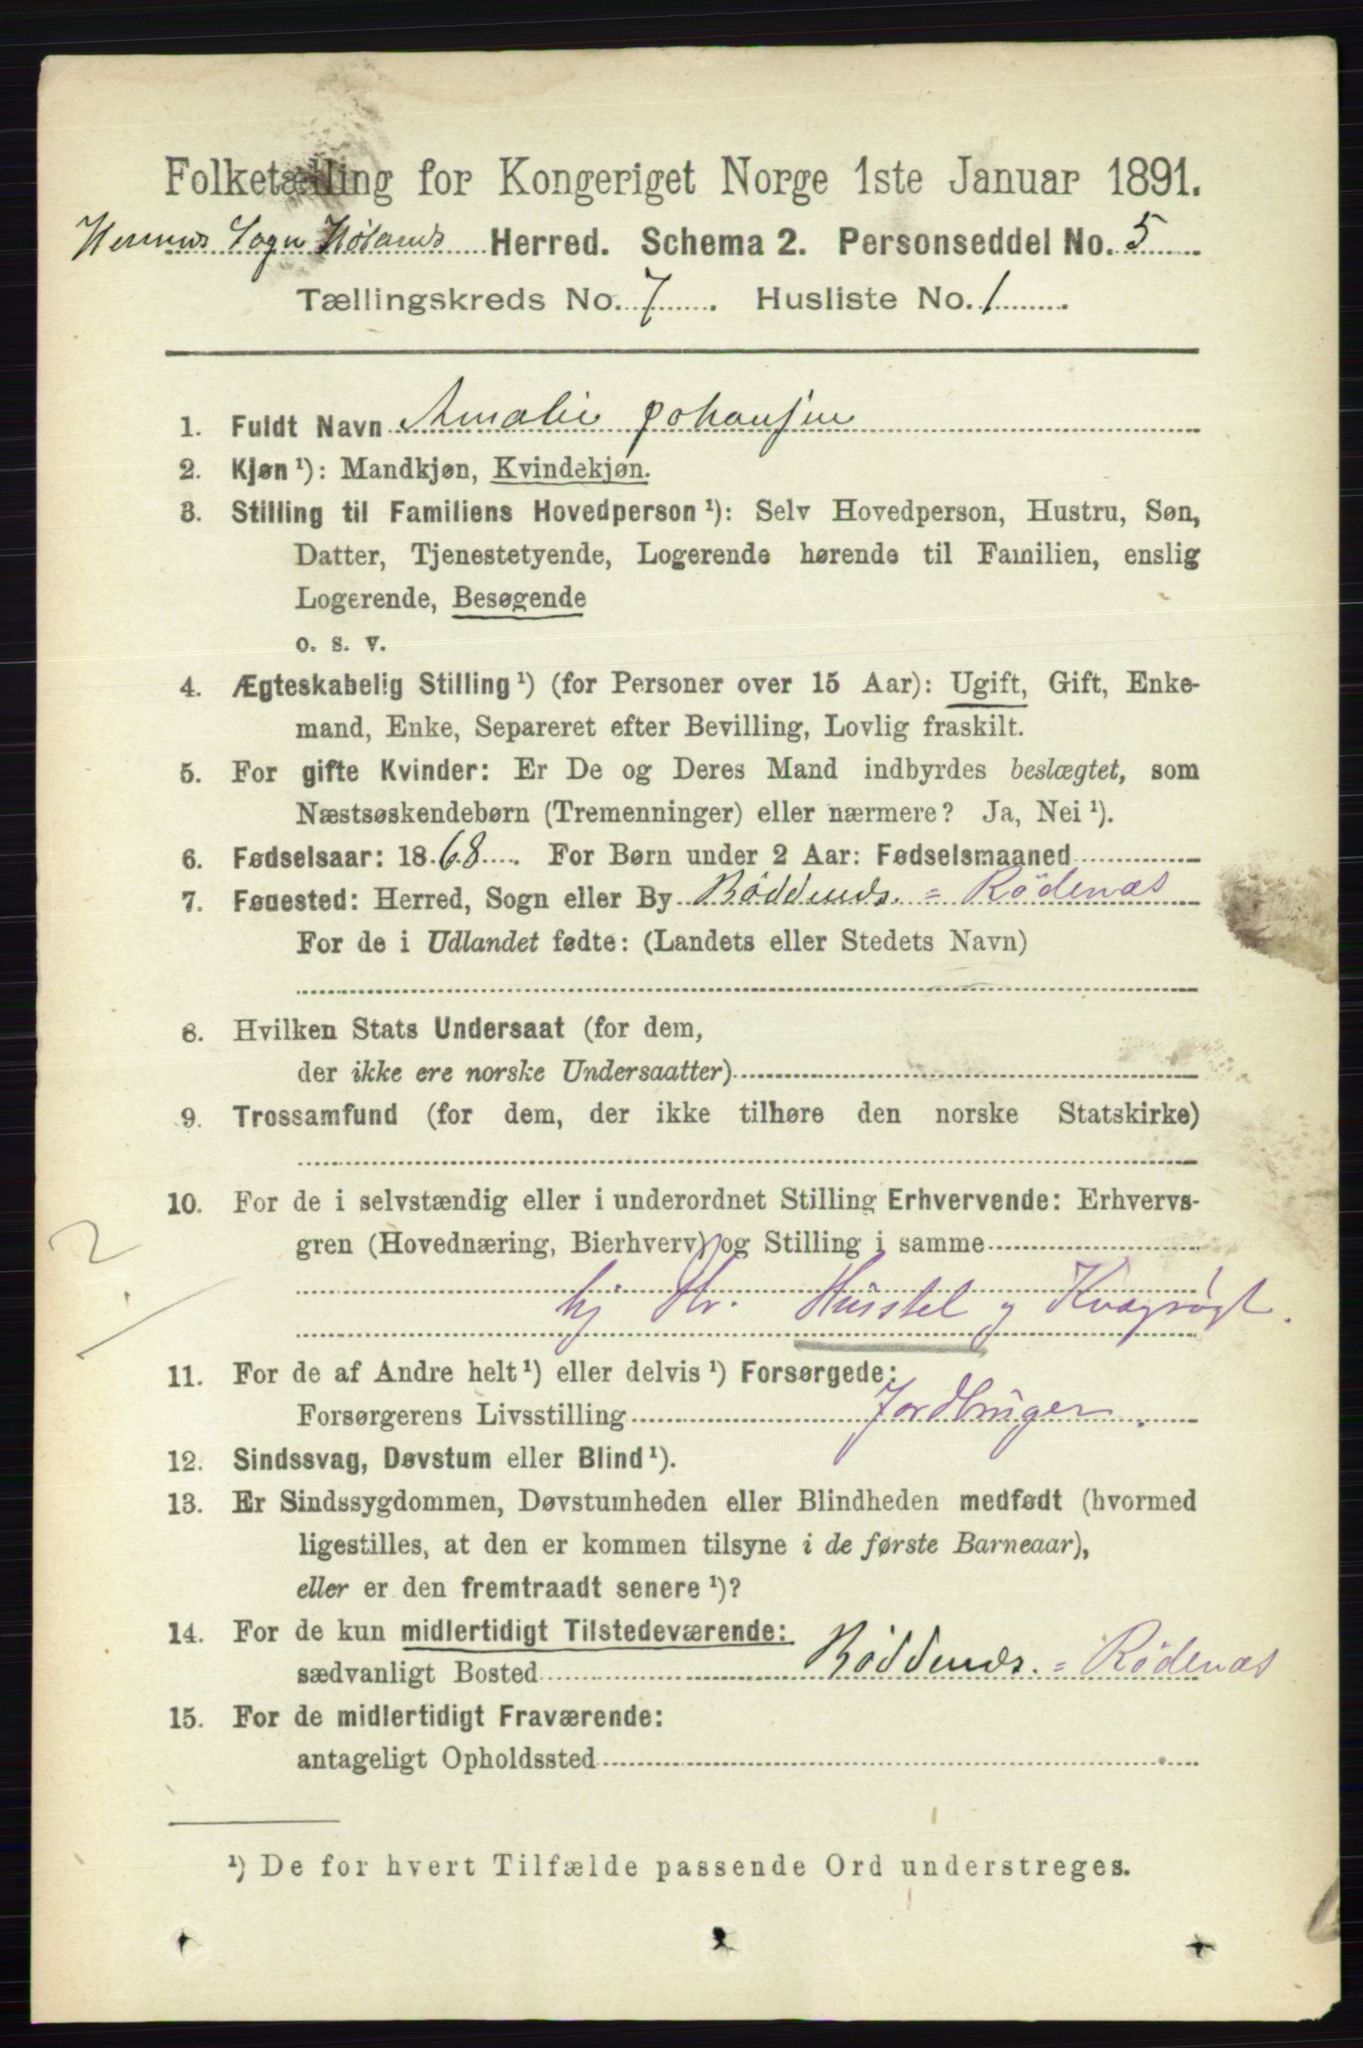 Folketælling for Kongeriget Norge 1ste Januar 1891.
Hemnes Sogn Hølands Herred. Schema 2. Personseddel No. 5
Tællingskreds No. 7. Husliste No. 1.
1. Fuldt Navn Amalie Johansen
2. Kjøn ¹): Mandkjøn, Kvindekjøn.
3. Stilling til Familiens Hovedperson ¹): Selv Hovedperson, Hustru, Søn,
Datter, Tjenestetyende, Logerende hørende til Familien, enslig
Logerende, Besøgende
o. s. v.
4. Ægteskabelig Stilling ¹) (for Personer over 15 Aar): Ugift, Gift, Enke-
mand, Enke, Separeret efter Bevilling, Lovlig fraskilt.
5. For gifte Kvinder: Er De og Deres Mand indbyrdes beslægtet, som
Næstsøskendebørn (Tremenninger) eller nærmere? Ja, Nei ¹).
6. Fødselsaar: 1868. For Børn under 2 Aar: Fødselsmaaned
7. Fødested: Herred, Sogn eller By Røddenæs. = Rödenæs
For de i Udlandet fødte: (Landets eller Stedets Navn)
8. Hvilken Stats Undersaat (for dem,
der ikke ere norske Undersaatter)
9. Trossamfund (for dem, der ikke tilhøre den norske Statskirke)
10. For de i selvstændig eller i underordnet Stilling Erhvervende: Erhvervs-
gren (Hovednæring, Bierhverv) og Stilling i samme
hj Mr. Husstel og Kvægrögt.
11. For de af Andre helt ¹) eller delvis ¹) Forsørgede:
Forsørgerens Livsstilling Jordbruger.
12. Sindssvag, Døvstum eller Blind ¹).
13. Er Sindssygdommen, Døvstumheden eller Blindheden medfødt (hvormed
ligestilles, at den er kommen tilsyne i de første Barneaar),
eller er den fremtraadt senere ¹)?
14. For de kun midlertidigt Tilstedeværende:
sædvanligt Bosted Røddenæs. = Rödenæs
15. For de midlertidigt Fraværende:
antageligt Opholdssted
¹) De for hvert Tilfælde passende Ord understreges.